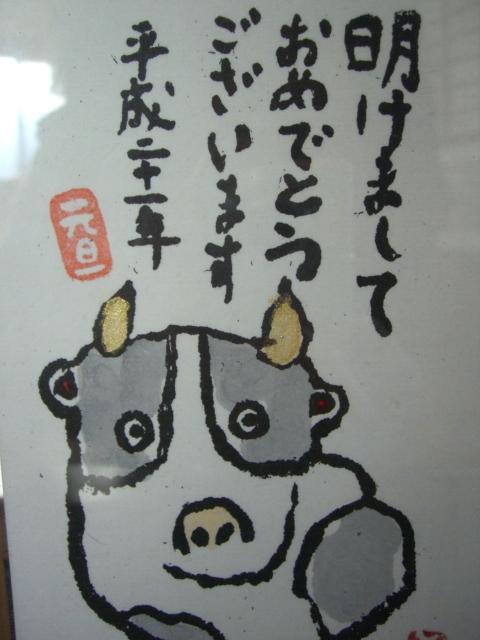 明けまして
おめでとう
ございます
平成二十一年
元旦